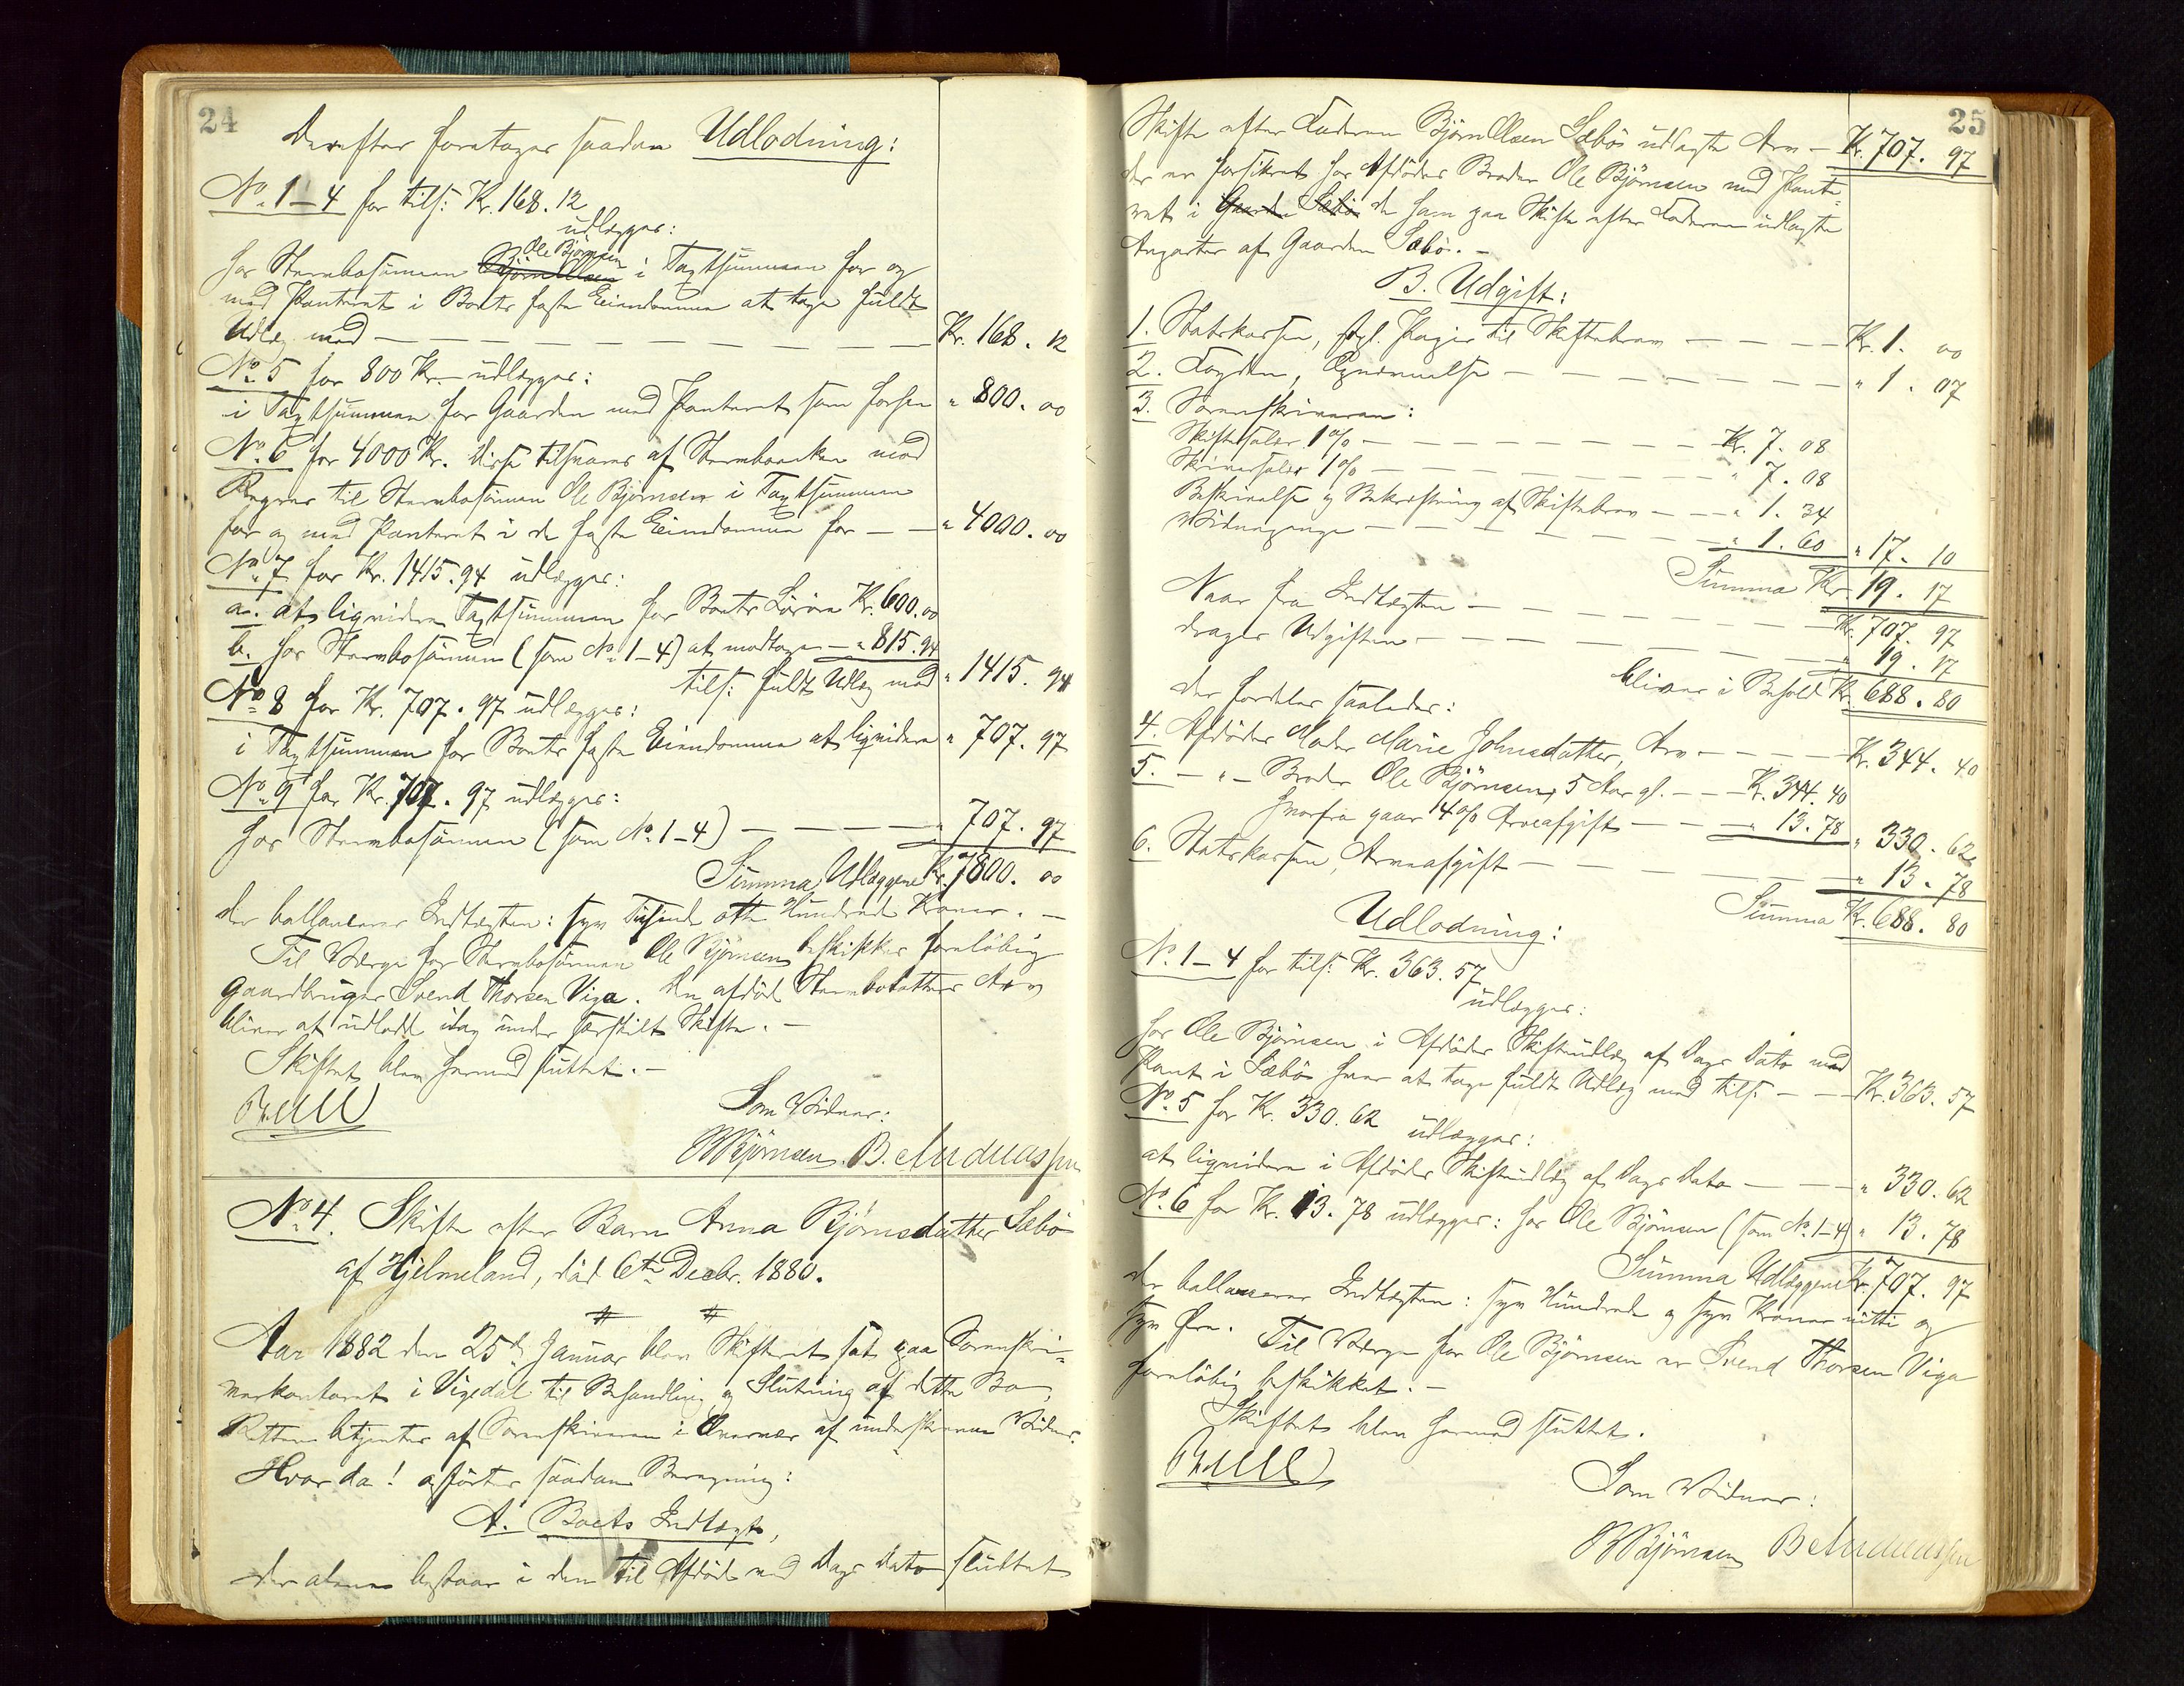 24
Derefter foretages saadan Udlodning:
No. 1-4 for tils: Kr. 168.12
udlægges:
hos Sterbosønnen Ole Bjørnsen i Taxtsummen for og
med Panteret i Boets faste Eiendomme at tage fuldt
Udlæg med — Kr. 168. 12
No. 5 for 800 Kr. udlægges:
i Taxtsummen for Gaarden med Panteret som forhen " 800. 00
No. 6 for 4000 Kr. Disse tilsvares af Sterboenken med
Regres til Sterbosønnen Ole Bjørnsen i Taxtsummen
for og med Panteret i de faste Eiendomme for — " 4000. 00
No. 7 for Kr. 1415.94 udlægges:
a. at liqvidere Taxtsummen for Boets Løsøre Kr. 600.00
b. hos Sterbosønnen (som No. 1-4) at modtage — " 815.94
tils: fuldt Udlæg med " 1415. 94
No. 8 for Kr. 707. 97 udlægges:
i Taxtsummen for Boets faste Eiendomme at liqvidere " 707. 97
No. 9 for Kr. 707. 97 udlægges:
hos Sterbosønnen (som No. 1-4) — " 707. 97
Summa Udlæggene Kr. 7800. 00
der ballancerer Indtægten: syv Tusinde otte Hundrede Kroner. —
Til Værge for Sterbosønnen Ole Bjørnsen beskikkes foreløbig
Gaardbruger Svend Thorsen Viga. Den afdød Sterbodatters Arv
bliver at udlodde idag under særskilt Skifte. —
Skiftet blev hermed sluttet. —
Som Vidner:
Bjørnsen. B. Andreassen
No. 4. Skifte efter Barn Anna Bjørnsdatter Sæbø
af Hjelmeland, død 6te Decbr. 1880.
Aar 1882 den 25de Januar blev Skifteret sat paa Sorenskri-
verkontoret i Vigedal til Behandling og Slutning af dette Bo,
Retten betjentes af Sorenskriveren i Overvær af underskrevne Vidner.
Hvor da! anførtes saadan Beregning:
A. Boets Indtægt,
der alene bestaar i den til Afdøde ved Dags Dato sluttet
25
Skifte efter Faderen Bjørn Olsen Sæbø udlagte Arv — Kr. 707. 97
der er forsikret hos Afdødes Broder Ole Bjørnsen med Pante-
ret i Gaarden Sæbø de ham paa Skifte efter Faderen udlagte
Anparter af Gaarden Sæbø. —
B. Udgift:
1. Statskassen, stpl. Papir til Skiftebrev — Kr. 1. 00
2. Fogden, — " 1. 07
3. Sorenskriveren:
Skiftesalær 1% — Kr. 7. 08
Skriversalær 1% — " 7. 08
Beskrivelse og Bekræftning af Skiftebrev — " 1. 34
Vidnepenge — " 1. 60 " 17. 10
Summa Kr. 19. 17
Naar fra Indtægten — Kr. 707. 97
drages Udgiften — " 19. 17
bliver i Behold Kr. 688. 80
der fordeles saaledes:
4. Afdødes Moder Marie Johnsdatter, Arv — Kr. 344. 40
5. — " — Broder Ole Bjørnsen, 5 Aar gl. — Kr. 344. 40
hvorfra gaar 4% Arveafgift — " 13. 78 " 330. 62
6. Statskassen, Arveafgift — " 13. 78
Summa Kr. 688. 80
Udlodning:
No. 1-4 for tils: Kr. 363. 57
udlægges:
hos Ole Bjørnsen i Afdødes Skifteudlæg af Dags Dato med
Pant i Sæbø hver at tage fuldt Udlæg med tils: — Kr. 363. 57
No. 5 for Kr. 330. 62 udlægges:
at liqvidere i Afdødes Skifteudlæg af Dags Dato — " 330. 62
No. 6 for Kr. 13. 78 udlægges: hos Ole Bjørnsen (som No. 1-4) " 13. 78
Summa Udlæggene Kr. 707. 97
der ballancerer Indtægten: syv Hundrede og syv Kroner nitti og
syv Øre. Til Værge for Ole Bjørnsen er Svend Thorsen Viga
foreløbig beskikket. —
Skiftet blev hermed sluttet.
Som Vidner:
Bjørnsen B Andreassen